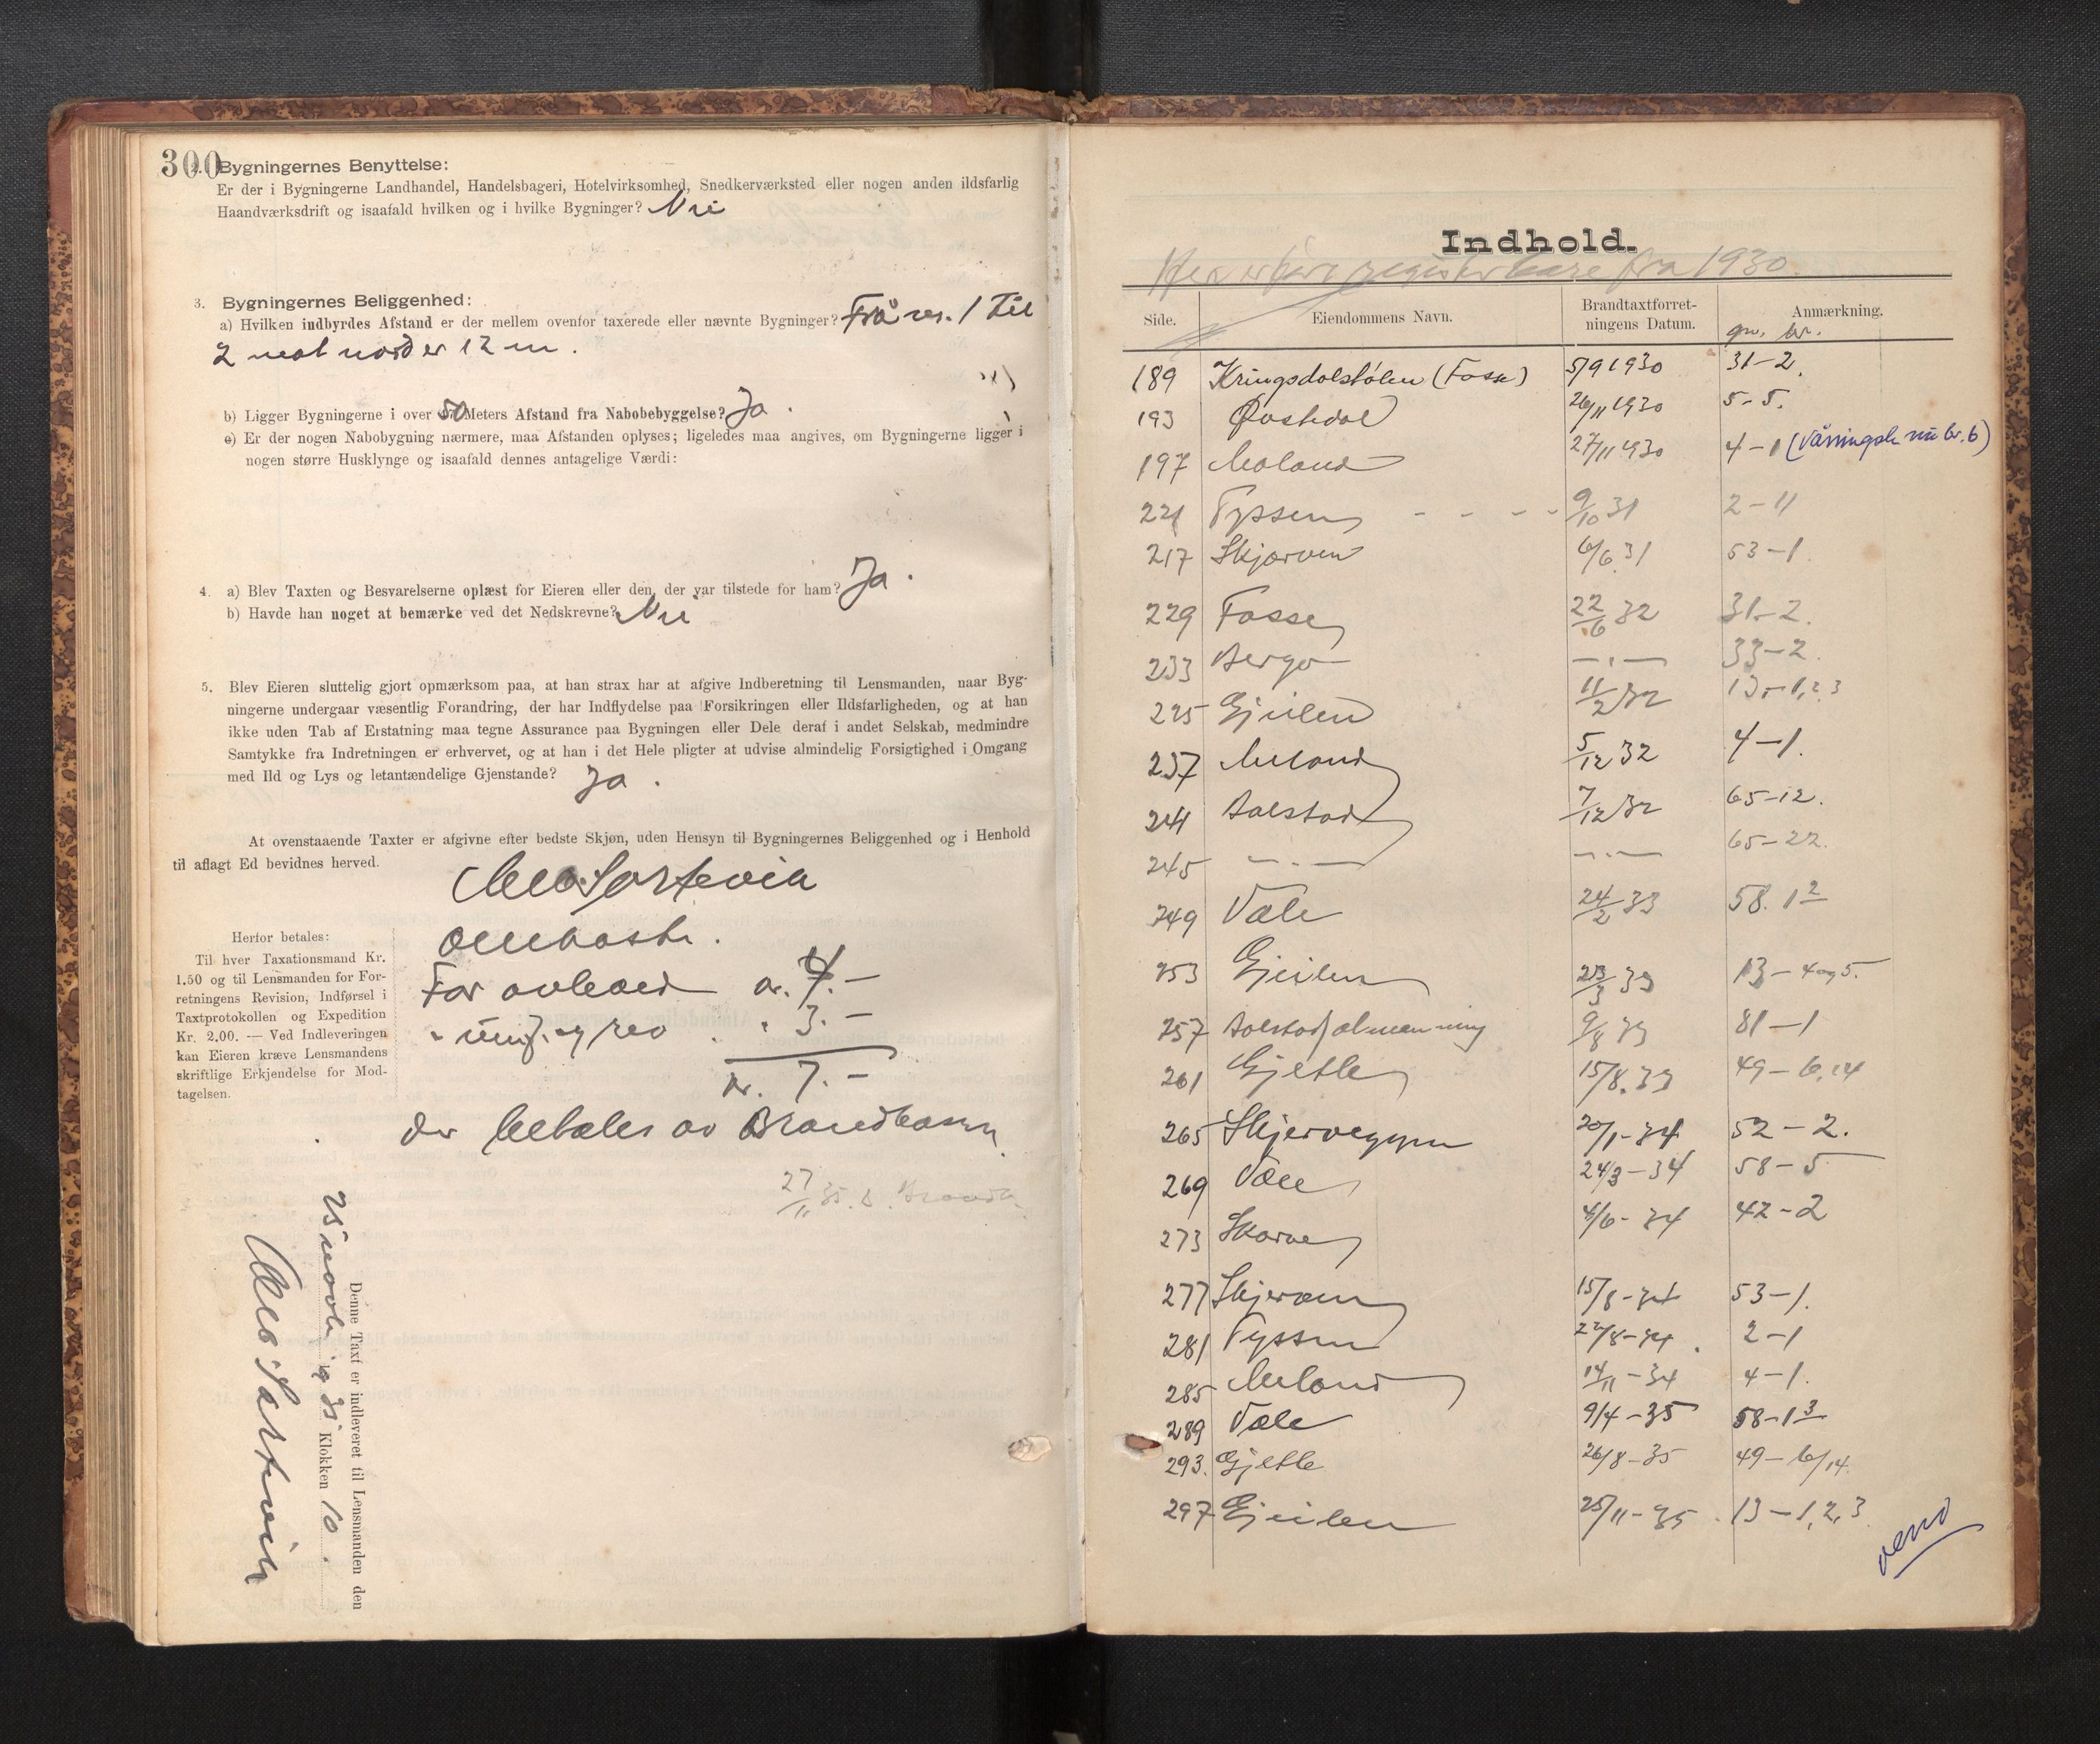 300
2. Bygningernes Benyttelse:
Er der i Bygningerne Landhandel, Handelsbageri, Hotelvirksomhed, Snedkerværksted eller nogen anden ildsfarlig
Haandværksdrift og isaafald hvilken og i hvilke Bygninger? Nei
3. Bygningernes Beliggenhed:
a) Hvilken indbyrdes Afstand er der mellem ovenfor taxerede eller nævnte Bygninger? Frå nr. 1 til
2 mot nord er 12 m.
b) Ligger Bygningerne i over 50 Meters Afstand fra Nabobebyggelse? Ja.
c) Er der nogen Nabobygning nærmere, maa Afstanden oplyses; ligeledes maa angives, om Bygningerne ligger i
nogen større Husklynge og isaafald dennes antagelige Værdi:
4. a) Blev Taxten og Besvarelserne oplæst for Eieren eller den, der var tilstede for ham? Ja.
b) Havde han noget at bemærke ved det Nedskrevne? Nei
5. Blev Eieren sluttelig gjort opmærksom paa, at han strax har at afgive Indberetning til Lensmanden, naar Byg-
ningerne undergaar væsentlig Forandring, der har Indflydelse paa Forsikringen eller Ildsfarligheden, og at han
ikke uden Tab af Erstatning maa tegne Assurance paa Bygningen eller Dele deraf i andet Selskab, medmindre
Samtykke fra Indretningen er erhvervet, og at han i det Hele pligter at udvise almindelig Forsigtighed i Omgang
med Ild og Lys og letantændelige Gjenstande? Ja.
At ovenstaaende Taxter er afgivne efter bedste Skjøn, uden Hensyn til Bygningernes Beliggenhed og i Henhold
til aflagt Ed bevidnes herved.
Herfor betales:
Til hver Taxationsmand Kr.
1.50 og til Lensmanden for For-
retningens Revision, Indførsel i
Taxtprotokollen og Expedition
Kr. 2.00. — Ved Indleveringen
kan Eieren kræve Lensmandens
skriftlige Erkjendelse for Mod-
tagelsen.
For kr. 4.-
og rev " 3.-
kr. 7.-
der betales av Brandkassen.
27/11 35.
Denne Taxt er indleveret til Lensmanden den
25 novbr. 19 35 Klokken 10.
Indhold.
register bare fra 1930.
Side. Eiendommens Navn. Brandtaxtforret-
ningens Datum. Anmærkning.
gnr. br.
189 Kringsdalstølen (Fosse) 5/9 1930 31-2.
193 Øvstedal 26/11 1930 5-5.
197 Moland 27/11 1930 4-1 (br. 6)
221 Tyssen - - - - 9/10 31 2-11
217 Skjerven 6/6 31 53-1.
229 Fosse 22/6 32 31-2.
233 Berge -"- 33-2.
225 Gjeilen 11/2 32 13-1,2,3
237 Meland 5/12 32 4-1.
241 Aalstad 7/12 32 65-12.
245 -"- -"- 65-22.
249 Væle 24/2 33 58.1²
253 Gjeilen 23/3 33 13-4 og 5.
257 Aalstad almenning 9/8 33 81-1
261 Gjelle 15/8.33 49-6,14
265 Skjerveggen 20/1-34 52-2.
269 Væle 24/3-34 58-5
273 Skorve 4/6-34 42-2
277 Skjerven 15/8-34 53-1.
281 Tyssen 22/8-34. 2-1
285 Meland 14/11-34 4-1.
289 Væle 9/4-35 58-1³
293. Gjelle 26/8-35 49-6/14.
297 Gjeilen 25/11-35. 13-1,2,3
vend